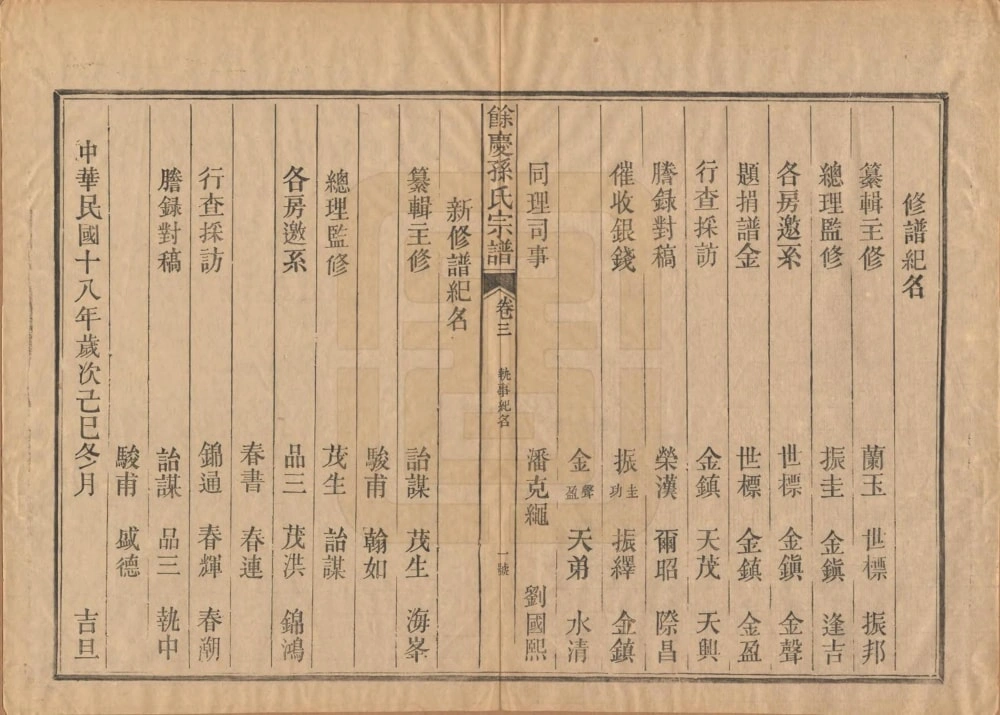 修譜紀名
纂輯主修 蘭玉 世標 振邦
總理監修 振圭 金鎮 逢吉
各房邀系 世標 金鎮 金聲
題捐譜金 世標 金鎮 金盈
行查採訪 金鎮 天茂 天興
謄録對稿 榮漢 爾昭 際昌
催收銀錢 振圭功 振繹 金鎮
金聲盈 天弟 水清
同理司事 潘克繩 劉國熙
餘慶孫氏宗譜 卷三 執事紀名 一號
新修譜紀名
纂輯主修 詒謀 茂生 海峯
駿甫 翰如
總理監修 茂生 詒謀
各房邀系 品三 茂洪 錦鴻
春書 春連
行查採訪 錦通 春輝 春潮
謄録對稿 詒謀 品三 執中
駿甫 盛德
中華民國十八年歲次己巳冬月 吉旦